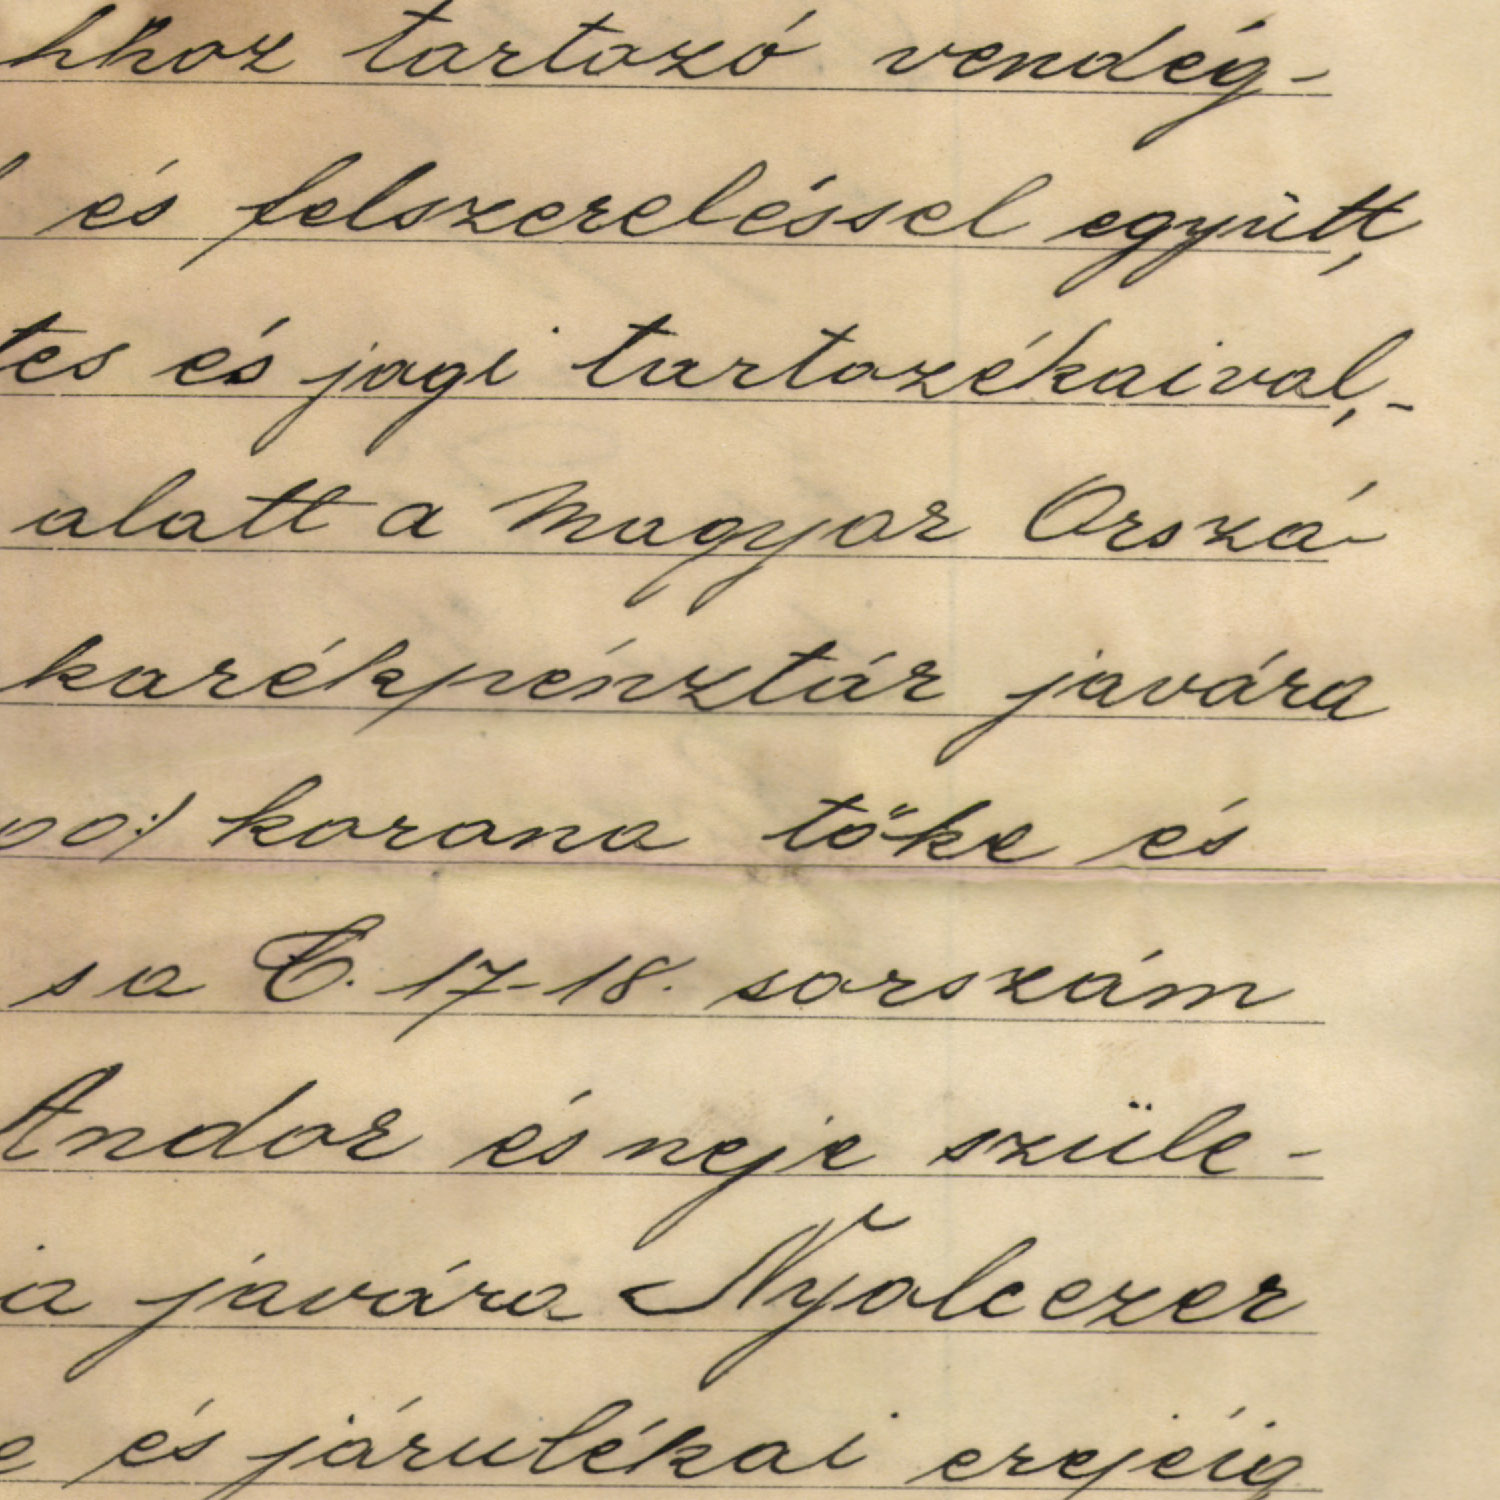 hhoz tartozó vendég-
és felszereléssel együtt,
tes és jogi tartozékaival,-
alatt a Magyar Orszá-
karékpénztár javára
00:/ korona tőke és
s a C. 17-18. sorszám
Andor és neje szüle-
a javára Nyolcezer
e és járulékai erejéig